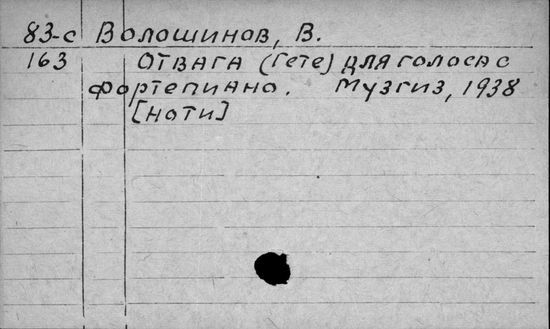 83-с Волошинов, В.
163 Отвага (Гете) для голоса с
фортепиано. Музгиз, 1938
[ноти]